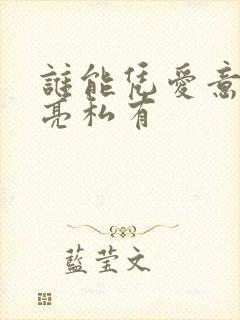 誰能凭愛意
亮私有
藍莹文